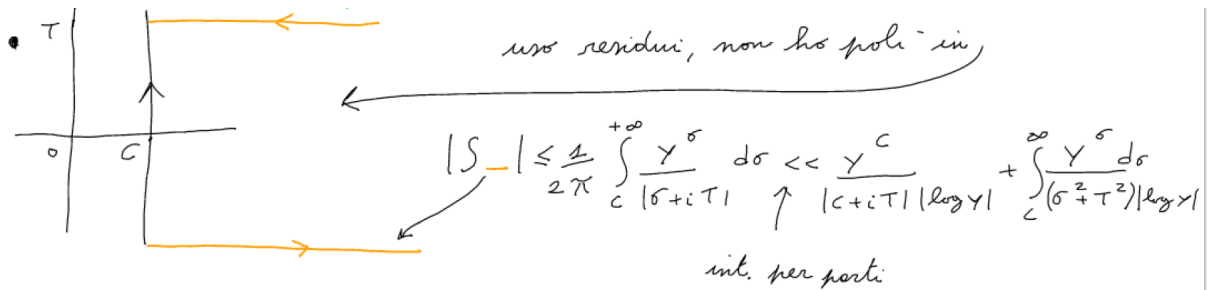 T
uso residui, non ho poli in
O C
|S_| ≤ 1/2π ∫_c^{+∞} y^σ/|σ+iT| dσ << y^c/(|c+iT| |log y|) + ∫_c^∞ y^σ dσ/((σ²+T²)|log y|)
int. per parti